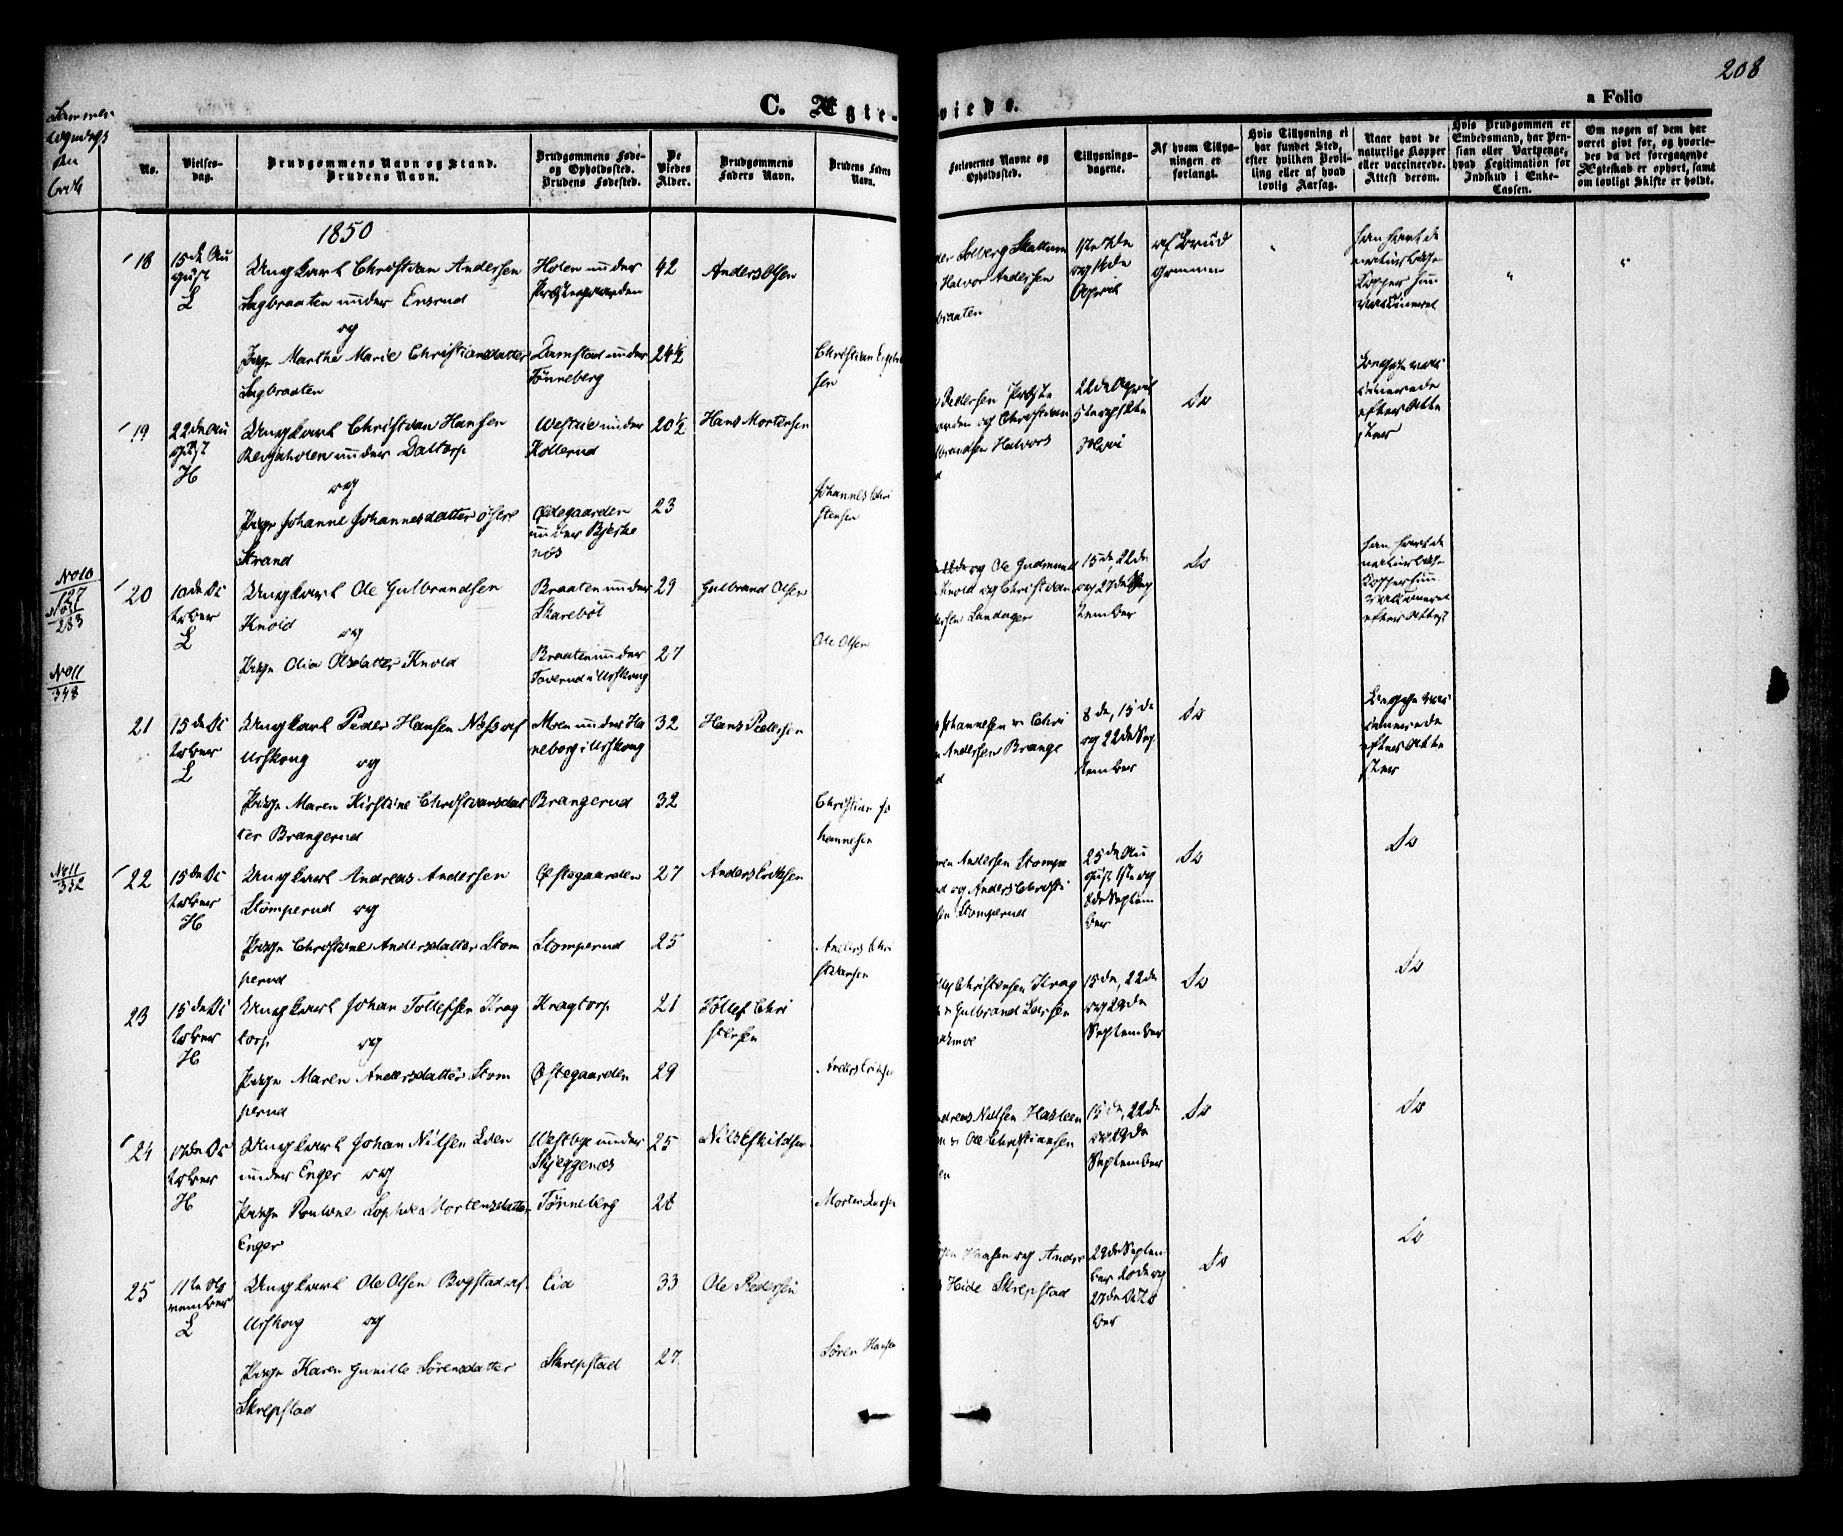 208
C. Ægte-
viede.
a Folio
No.
Vielses-
dag.
Brudgommens Navn og Stand.
Brudens Navn.
Brudgommens Føde-
og Opholdssted.
Brudens Fødested.
De
Viedes
Alder.
Brudgommens
Faders Navn.
Brudens Faders
Navn.
Forlovernes Navne og
Opholdssted.
Tillysnings-
dagene.
Af hvem Tillys-
ningen er
forlangt.
Hvis Tillysning ei
har fundet Sted,
efter hvilken Bevil-
ling eller af hvad
lovlig Aarsag.
Naar havt de
naturlige Kopper
eller vaccinerede.
Attest derom.
Hvis Brudgommen er
Embedsmand, har Pen-
sion eller Vartpenge,
hvad Legitimation for
Indskud i Enke-
Cassen.
Om nogen af dem har
været gift før, og hvorle-
des da det foregaaende
Ægteskab er ophørt, samt
om lovligt Skifte er holdt.
1850
18
15de Au
gust
L
Ungkarl Christian Andersen
Sagbraaten under Ensrud
og
Pige Marthe Marie Christiansdatter
Sagbraaten
Holen under
Præstegaarden
Damstad under
Tønneberg
42
24½
Anders Olsen
Christian Engebret
sen
Solberg Skattum
Halvor Andersen
braaten
1ste 7de
og 14de
April
af Brud
gommen
han havt de
naturlige
Kopper hun
vaccineret
19
22de Au
gust
H
Ungkarl Christian Hansen
Bergaholen under Daltorp
og
Pige Johanne Johannesdatter
Strand
Westbie under
Kollerud
Ødegaarden
under Bjerke
næs
20½
23
Hans Mortensen
Johannes Chri
stensen
Pedersen Præste
gaarden og Christian
Halvors
22de April
5te og 12te
Mai
Do
Begge vac
cinerede
efter Atte
ster
No10
127
283
20
10de Oc
tober
L
Ungkarl Ole Gulbrandsen
Knold
og
Pige Olia Olsdatter Knold
Braaten under
Skarebøl
Braaten under
Toverud i Urskoug
29
27
Gulbrand Olsen
Ole Olsen
og Ole Gudmund
Knold og Christian
Landager
15de, 22de
og 27de Sep
tember
Do
han havt de
naturlige
Kopper hun
vaccineret
efter Attest
No11
348
21
15de Oc
tober
L
Ungkarl Peder Hansen Næss af
Urskoug og
Pige Maren Kirstine Christiansdat
ter Brangerud
Moen under Ha
neborg i Urskoug
Brangerud
32
32
Hans Pedersen
Christian Jo
hannesen
Johannesen & Chri
Andersen Brange
8de, 15de
og 22de Sep
tember
Do
Begge vac
cinerede
efter Atte
ster
No11
332
22
15de Oc
tober
H
Ungkarl Andreas Andersen
Stomperud og
Pige Christine Andersdatter Stom
perud
Østegaarden
Stomperud
27
25
Anders Eriksen
Anders Chri
stiansen
Andersen Stompe
og Anders Christi
Stomperud
25de Au
gust 1ste og
8de Septem
ber
Do
Do
23
15de Oc
tober
H
Ungkarl Johan Tollefsen Krog
torp og
Pige Maren Andersdatter Stom
perud
Krogtorp
Østegaarden
21
29
Tollef Chri
stensen
Anders Eriksen
Christensen Krog
Gulbrand Larsen
15de, 22de
og 29de
September
Do
Do
24
17de Oc
tober
H
Ungkarl Johan Nilsen Lien
under Enger og
Pige Pauline Sophie Mortensdatter
Enger
Westbye under
Skjeggenæs
Tønneberg
25
28
Nils Eskildsen
Morten Larsen
Nilsen Hasleen
& Ole Christiansen
15de, 22de
og 29de
September
Do
Do
25
11te No
vember
L
Ungkarl Ole Olsen Bogstad af
Urskoug og
Pige Karen Gunille Sørensdatter
Skrepstad
Eid
Skrepstad
33
27
Ole Pedersen
Søren Hansen
Hansen og Andre
Hide Skrepstad
29de Septem
ber 20de og
27de Octo
ber
Do
Do